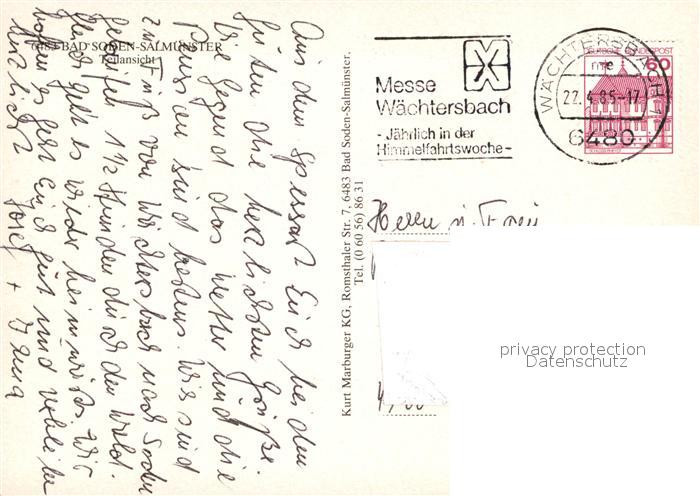 6483 BAD SODEN-SALMÜNSTER
Teilansicht
Aus dem Spessart Euch beiden
Guten die herzlichsten Grüße.
Die Gegend das Wetter und die
Pension sind bestens. Wir sind
zu Fuß von Wächtersbach nach Soden
gelaufen 1 1/2 Stunden durch den Wald.
geht es wieder heimwärts. Wir
hoffen es geht Euch gut und
herzlichst Josef + Irma
Kurt Marburger KG, Romsthaler Str. 7, 6483 Bad Soden-Salmünster.
Tel. (0 60 56) 86 31
Messe
Wächtersbach
- Jährlich in der
Himmelfahrtswoche -
WÄCHTERSBACH 1
me
22.4.85-17
6480
DEUTSCHE BUNDESPOST
60
Herrn u. Frau
privacy protection
Datenschutz